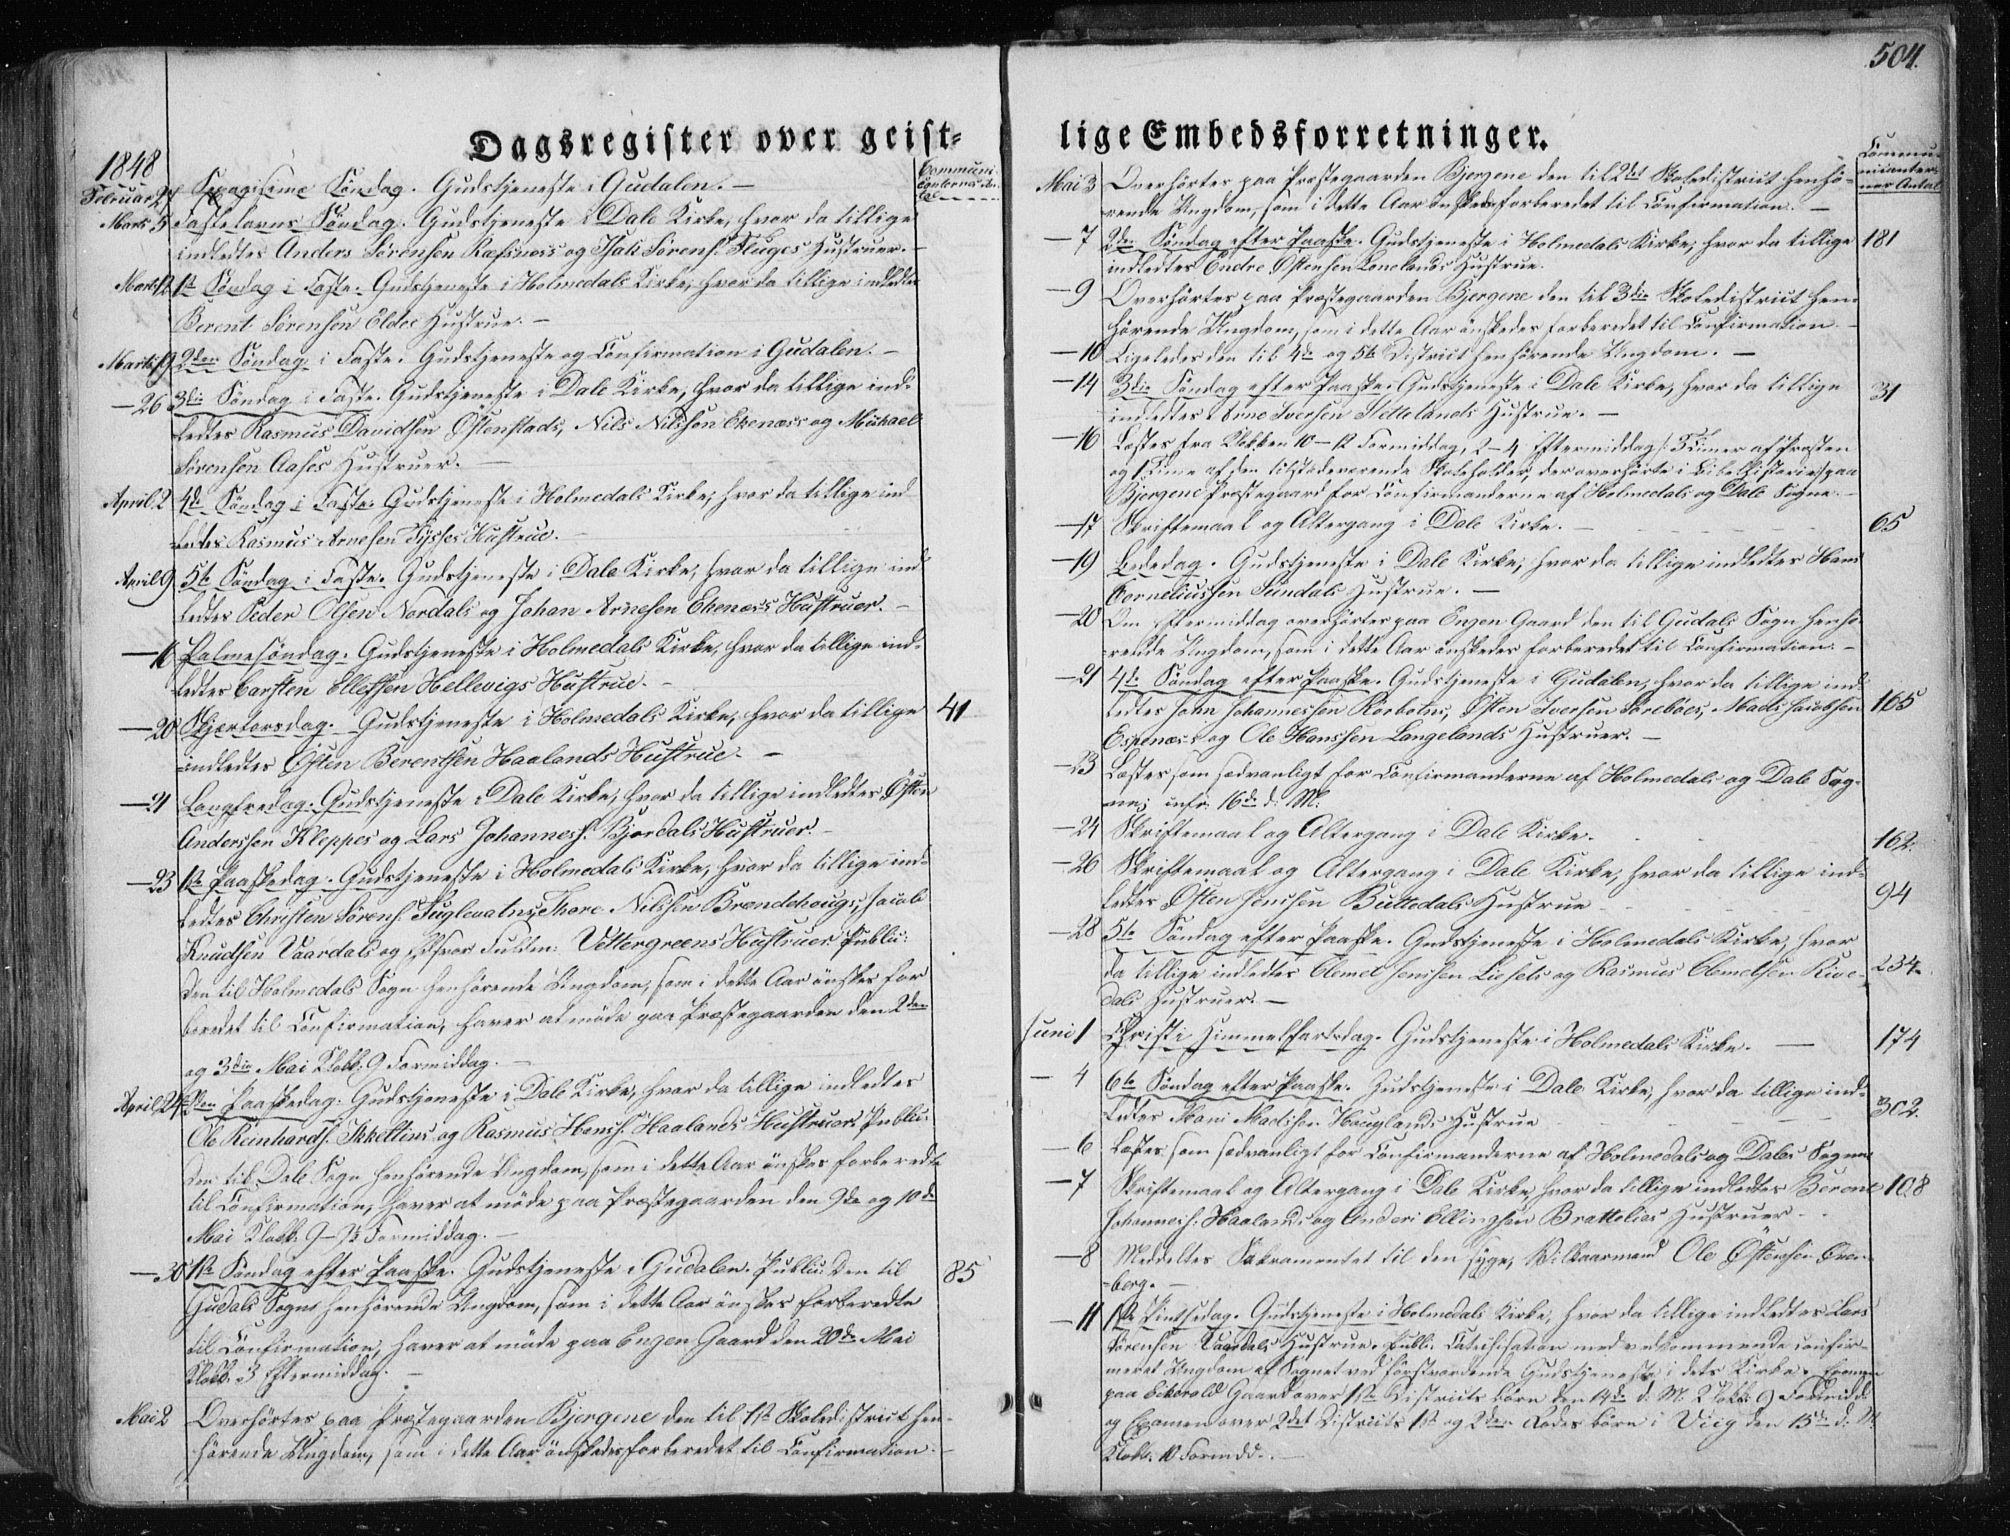 504.
Dagsregister over geist-
lige Embedsforretninger.
1848
Communi-
canternes An-
tal
Februar 27 Sexagisime Søndag. Gudstjeneste i Gudalen. —
Marts 5 Fastelavns Søndag. Gudstjeneste i Dale Kirke, hvor da tillige
indledtes Anders Sørensen Rafsnæss og Hals Sørens. Fluges Hustruer. —
Marts 12 1ste Søndag i Faste. Gudstjeneste i Holmedals Kirke, hvor da tillige indledtes
Berent Sørensen Eldes Hustrue. —
Marts 19 2den Søndag i Faste. Gudstjeneste og Confirmation i Gudalen. —
— 26 3die Søndag i Faste. Gudstjeneste i Dale Kirke, hvor da tillige ind-
ledtes Rasmus Davidsen Østenstads, Nils Nilssøn Ekenæss og Michael
Sørensen Aases Hustruer. —
April 2 4de Søndag i Faste. Gudstjeneste i Holmedals Kirke, hvor da tillige ind
ledtes Rasmus Arnesen Tysses Hustrue. —
April 9 5te Søndag i Faste. Gudstjeneste i Dale Kirke, hvor da tillige ind
ledtes Peder Olsen Nordals og Johan Arnesen Ekenæss Hustruer. —
— 16 Palmesøndag. Gudstjeneste i Holmedals Kirke, hvor da tillige ind-
ledtes Carsten Elleffsen Hellevigs Hustrue. —
— 20 Skjærtorsdag. Gudstjeneste i Holmedals Kirke, hvor da tillige 41
indledtes Østen Berentsen Haalands Hustrue. —
— 21 Langfredag. Gudstjeneste i Dale Kirke, hvor da tillige indledtes Østen
Anderssen Kleppes og Lars Johanness. Bjordals Hustruer. —
— 23 1ste Paaskedag. Gudstjeneste i Holmedals Kirke, hvor da tillige ind-
ledtes Christen Sørens. Fuglevatns, Thore Nilssen Brændehougs, Jacob
Knudsen Vaardals og Vettergreens Hustruer. Public:
den til Holmedals Sogn henhørende Ungdom, som i dette Aar ønskes for
beredet til Confirmation, haver at møde paa Præstegaarden den 2den
og 3die Mai Klokk: 9 Formiddag. —
April 24 2den Paaskedag. Gudstjeneste i Dale Kirke, hvor da tillige indledtes
Ole Reinhards. Ikkeltins og Rasmus Hanss. Haalands Hustruer. Public:
den til Dale Sogn henhørende Ungdom, som i dette Aar ønskes forberedte
til Confirmation, haver at møde paa Præstegaarden den 9de og 10de
Mai Klokk: 9 Formiddag. —
— 30 1ste Søndag efter Paaske. Gudstjeneste i Gudalen. Public: Den til 85
Gudals Sogn henhørende Ungdom, som i dette Aar ønskes forberedte
til Confirmation, haver at møde paa Engen Gaard den 20de Mai
Klokk: 3 Eftermiddag. —
Mai 2 Overhørtes paa Præstegaarden Bjergene den til 1ste Skoledistrict hen-
hørende Ungdom, som i dette Aar ønskedes forberedet til Confirmation. —
Commu-
nicanter-
nes Antal
Mai 3 Overhørtes paa Præstegaarden Bjergene den til 2det Skoledistrict henhø-
rende Ungdom, som i dette Aar ønskedes forberedet til Confirmation. —
— 7 2den Søndag efter Paaske. Gudstjeneste i Holmedals Kirke, hvor da tillige 181
indledtes Endre Østensen Lonelands Hustrue.
— 9 Overhørtes paa Præstegaarden Bjergene den til 3die Skoledistrict hen-
hørende Ungdom, som i dette Aar ønskedes forberedet til Confirmation. —
— 10 Ligeledes den til 4de og 5te District henhørende Ungdom. —
— 14 3die Søndag efter Paaske. Gudstjeneste i Dale Kirke, hvor da tillige 31
indledtes Arne Iversen Nettelands Hustrue. —
— 16 Læstes fra Klokken 10–12 Formiddag, 2–4 Eftermiddag 3 Timer af Præsten
og 1 Time af den tilstædeværende Skoleholder, der overhørte i Bibelhistorie paa
Bjergene Præstegaard for Confirmanderne af Holmedals og Dale Sogne. —
— 17 Skriftemaal og Altergang i Dale Kirke. — 65
— 19 Bededag. Gudstjeneste i Dale Kirke, hvor da tillige indledtes Hans
Corneliussen Sundals Hustrue. —
— 20 Om Eftermiddag overhørtes paa Engen Gaard den til Gudals Sogn henhø-
rende Ungdom, som i dette Aar ønskedes forberedet til Confirmation. —
— 21 4de Søndag efter Paaske. Gudstjeneste i Gudalen, hvor da tillige ind-
ledtes John Johannessen Rørbotns, Østen Iversen Sørebøes, Mads Jacobsen 165
Espenæss og Ole Hanssen Langelands Hustruer. —
— 23 Læstes som sædvanligt for Confirmanderne af Holmedals og Dale Sog-
ne; 16de d. M.
— 24 Skriftemaal og Altergang i Dale Kirke. 162.
— 26 Skriftemaal og Altergang i Dale Kirke, hvor da tillige ind-
ledtes Østen Jenssen Buttedals Hustrue 94
— 28 5te Søndag efter Paaske. Gudstjeneste i Holmedals Kirke, hvor
da tillige indledtes Clemet Jenssen Liesets og Rasmus Clemetsen Rive- 234.
dals Hustruer. —
Juni 1 Christi Himmelfartsdag. Gudstjeneste i Holmedals Kirke. — 174
— 4 6te Søndag efter Paaske. Gudstjeneste i Dale Kirke, hvor da tillige ind-
ledtes Madssen Houglands Hustrue 302.
— 6 Læstes som sædvanligt for Confirmanderne af Holmedals og Dales Sogne
— 7 Skriftemaal og Altergang i Dale Kirke, hvor da tillige indledtes Berent 108
Johanness. Haalands og Anders Ellingsen Brattelies Hustruer. —
— 8 Meddeltes Sakramentet til den syge, Vilkaarmand Ole Østensen Øren-
berg. —
— 11 1ste Pintsedag. Gudstjeneste i Holmedals Kirke, hvor da tillige indledtes Lars
Sørensen Vaardals Hustrue. Public. Catechisation med vedkommende confir-
meret Ungdom af Sognet ved førstvordende Gudstjeneste i dets Kirke. Examen
paa Eikevold Gaard over 1ste Districts børn den 14de d. M. Klokk: 9 Formidd.
og Examen over 2det Districts 1ste og 2den Rodes børn i Viig den 15de d. M.
Klokk. 10 Formdd. —